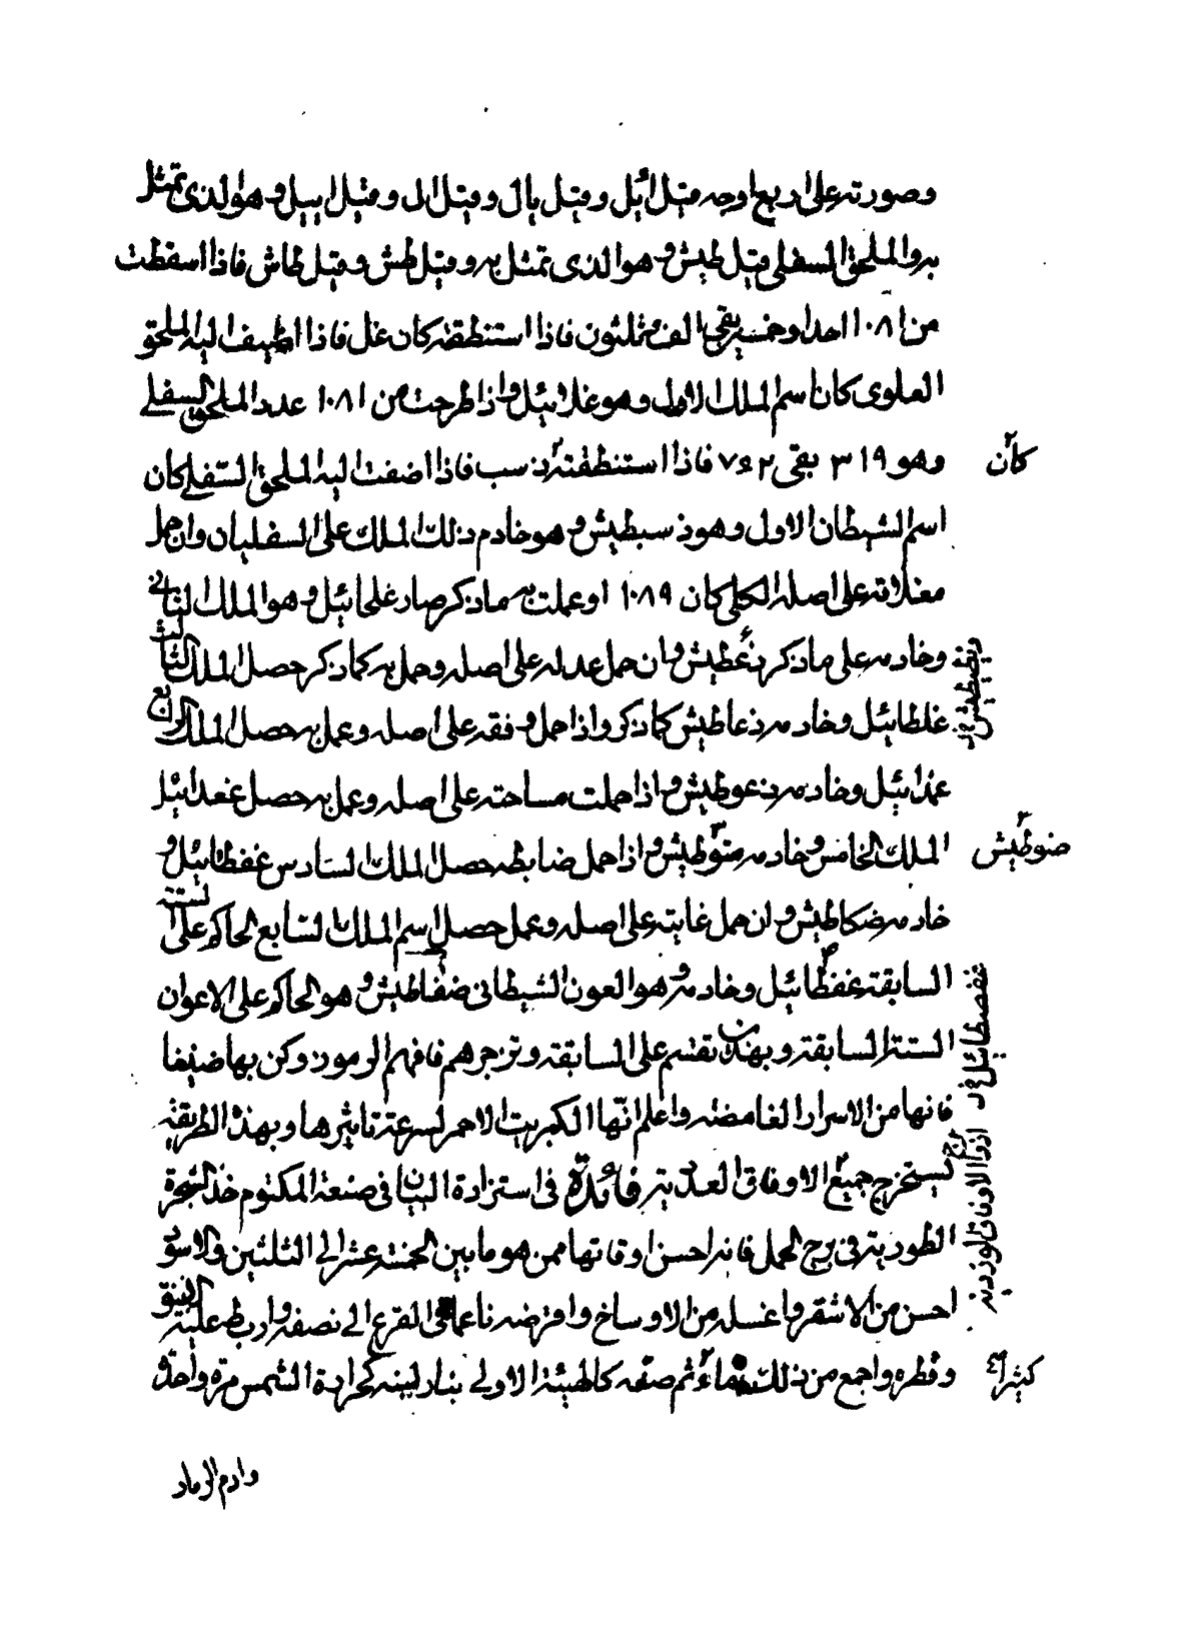 وصورته على اربع اوجه قيل ائيل وقيل يال وقيل ال وقيل اييل وهو الذى تمثل
به والملحق السفلى قيل طيش وهو الذى تمثل به وقيل طش وقيل طاش فاذا اسقطت
من ١٠٨١ احدا وخمسين بقى الف وثلثون فاذا استنطقته كان غل فاذا اضيف اليه الملحق
العلوى كان اسم الملك الاول وهو غلائيل واذا طرحت من ١٠٨١ عدد الملحق السفلى
وهو ٣١٩ بقى ٧٦٢ فاذا استنطقته ذسب فاذا اضفت اليه الملحق السفلى كان
كان
اسم الشيطان الاول وهو ذسبطيش وهو خادم ذلك الملك على السفليان وان حمل
مغلاقه على اصله الكلى كان ١٠٨٩ او عملت به ما ذكر صار غلحائيل وهو الملك الثانى
وخادمه على ما ذكر ذعطيش وان حمل عدله على اصله وحمل به كما ذكر حصل الملك الثالث
غلطائيل وخادمه ذعاطيش كما ذكر واذا حمل وفقه على اصله وعمل به حصل الملك الرابع
غمذائيل وخادمه ذعوطيش واذا حملت مساحته على اصله وعمل به حصل غغدائيل
الملك الخامس وخادمه منوطيش واذا حمل ضابطه حصل الملك السادس غفظائيل و
ضوطيش
خادمه ضكاطيش وان حمل غايته على اصله وعمل حصل اسم الملك السابع الحاكم على الستة
السابقة غفظائيل وخادمه وهو العون الشيطانى ضفاطيش وهو الحاكم على الاعوان
الستة السابقة وبهذين تقسم على السابقة وتزجرهم فافهم الرموز وكن بها ضنينا
فانها من الاسرار الغامضه واعلم انها الكبريت الاحمر لسرعة تاثيرها وبهذه الطريقة
يستخرج جميع الاوفاق العددية فائدة فى استزادة البيان فى صنعة المكتوم خذ الشجرة
الطورية فى برج الحمل فانه احسن اوقاتها ممن هو ما بين الخمسة عشر الى الثلثين والاسود
احسن من الاشقر واغسله من الاوساخ واقرضه ناعما فى القرع الى نصفه واربط عليه الانبيق
وقطره واجمع من ذلك ماء ثم صفه كالهيئة الاولى بنار لينه كحرارة الشمس مرة واحدة و
كثيرا
وادم الرماد